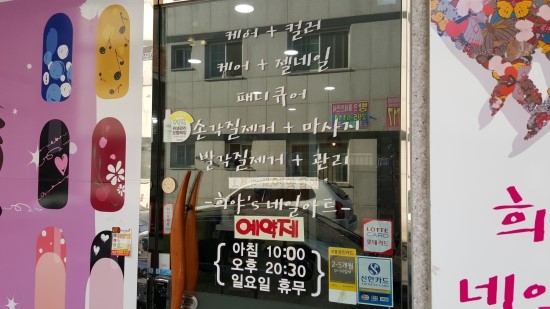 케어 + 컬러
케어 + 젤네일
패디큐어
손각질제거 + 마사지
발각질제거 + 관리
-희야's 네일아트-
예약제
아침 10:00
오후 20:30
일요일 휴무
LOTTE
CARD
롯데카드
2~5개월
신한카드
희
네